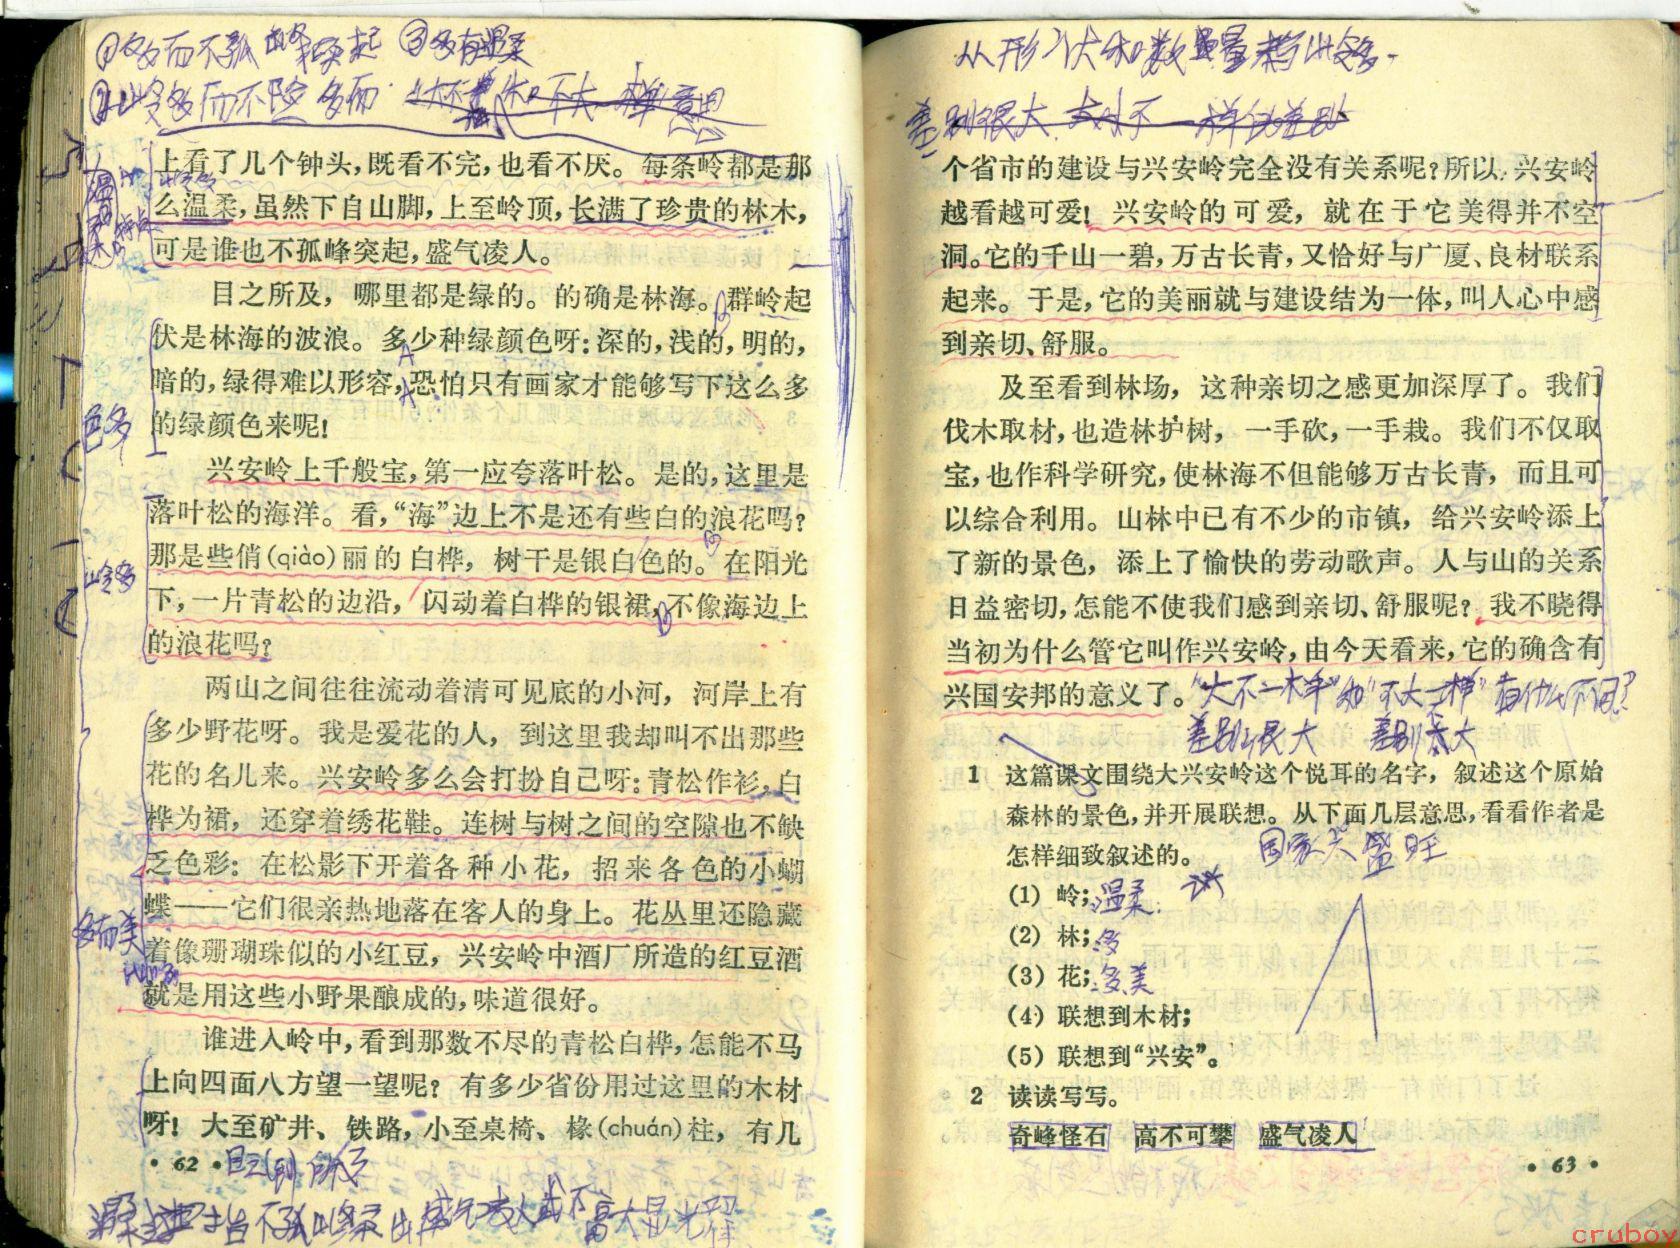 ①多而不孤峰突起 ③多有温柔
②岭多而不险 多而
意思
上看了几个钟头,既看不完,也看不厌。每条岭都是那
么温柔,虽然下自山脚,上至岭顶,长满了珍贵的林木,
可是谁也不孤峰突起,盛气凌人。
温柔
目之所及,哪里都是绿的。的确是林海。群岭起
伏是林海的波浪。多少种绿颜色呀:深的,浅的,明的,
暗的,绿得难以形容,恐怕只有画家才能够写下这么多
的绿颜色来呢!
色多
兴安岭上千般宝,第一应夸落叶松。是的,这里是
落叶松的海洋。看,“海”边上不是还有些白的浪花吗?
那是些俏(qiào)丽的白桦,树干是银白色的。在阳光
下,一片青松的边沿,闪动着白桦的银裙,不像海边上
的浪花吗?
两山之间往往流动着清可见底的小河,河岸上有
多少野花呀。我是爱花的人,到这里我却叫不出那些
花的名儿来。兴安岭多么会打扮自己呀:青松作衫,白
桦为裙,还穿着绣花鞋。连树与树之间的空隙也不缺
乏色彩:在松影下开着各种小花,招来各色的小蝴
蝶——它们很亲热地落在客人的身上。花丛里还隐藏
着像珊瑚珠似的小红豆,兴安岭中酒厂所造的红豆酒
就是用这些小野果酿成的,味道很好。
多而美
谁进入岭中,看到那数不尽的青松白桦,怎能不马
上向四面八方望一望呢?有多少省份用过这里的木材
呀!大至矿井、铁路,小至桌椅、椽(chuán)柱,有几
·62·
从形状和数量来写岭多
差别很大
个省市的建设与兴安岭完全没有关系呢?所以,兴安岭
越看越可爱!兴安岭的可爱,就在于它美得并不空
洞。它的千山一碧,万古长青,又恰好与广厦、良材联系
起来。于是,它的美丽就与建设结为一体,叫人心中感
到亲切、舒服。
及至看到林场,这种亲切之感更加深厚了。我们
伐木取材,也造林护树,一手砍,一手栽。我们不仅取
宝,也作科学研究,使林海不但能够万古长青,而且可
以综合利用。山林中已有不少的市镇,给兴安岭添上
了新的景色,添上了愉快的劳动歌声。人与山的关系
日益密切,怎能不使我们感到亲切、舒服呢?我不晓得
当初为什么管它叫作兴安岭,由今天看来,它的确含有
兴国安邦的意义了。“大不一样”和“不大一样”有什么不同?
差别很大 差别不大
1 这篇课文围绕大兴安岭这个悦耳的名字,叙述这个原始
森林的景色,并开展联想。从下面几层意思,看看作者是
怎样细致叙述的。 国家 盛旺
(1) 岭;温柔
(2) 林;多
(3) 花;多美
(4) 联想到木材;
(5) 联想到“兴安”。
2 读读写写。
奇峰怪石 高不可攀 盛气凌人
·63·
crubox